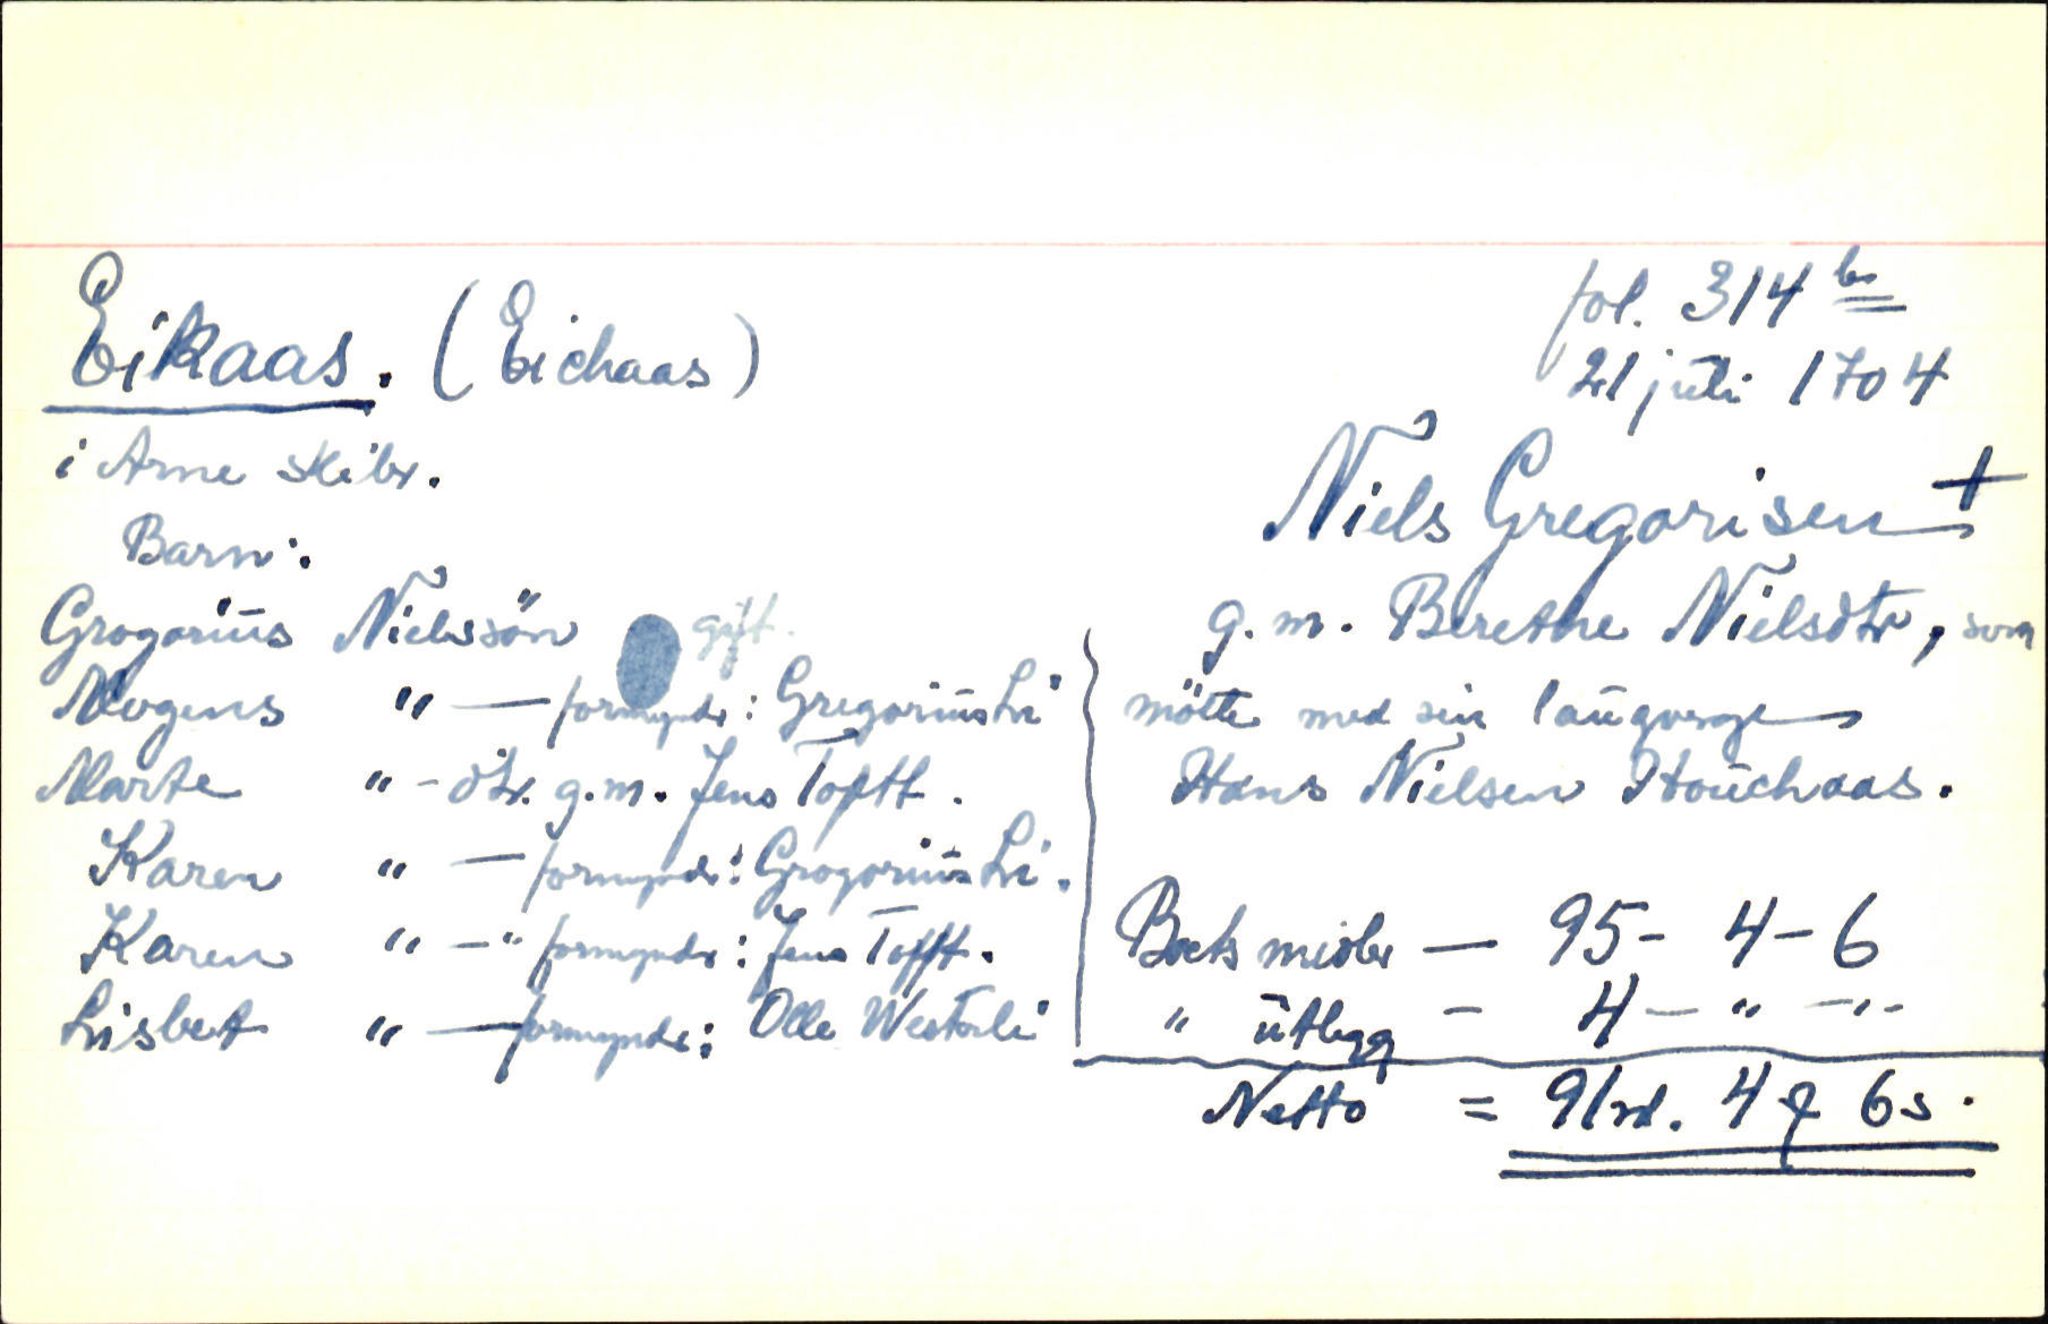 Eikaas. (Eichaas)
fol. 314 b
21 juli 1704
i Arne skibr.
Niels Gregorisen +
Barn:
g.m. Berethe Nielsdtr, som
mötte med sin laugverge
Hans Nielsen Houchaas.
Grogorius Nielssön gift.
Mogens " — formyndr: Gregorius Li
Marte " - dtr. g.m. Jens Tofft.
Karen " — formyndr: Grogorius Li.
Karen " —" formyndr: Jens Tofft.
Lisbet " — formyndr: Olle Westerli
Boets midler — 95 - 4 - 6
" utlegg - 4 — " — " -
Netto = 91 rd. 4 ₰ 6 s.